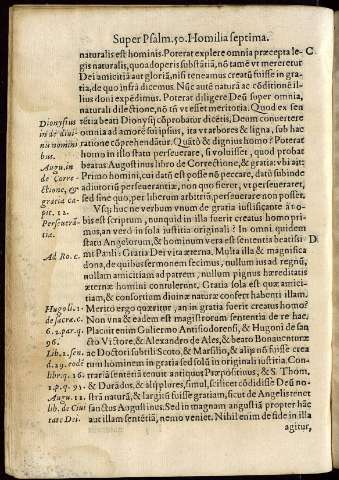 Super Psalm. 50. Homilia septima.
naturalis est hominis. Poterat explere omnia præcepta le- C
gis naturalis, quoad operis substãtiã, nõ tamẽ vt mereretur
Dei amicitiã aut gloriã, nisi teneamus creatũ fuisse in gra-
tia, de quo infrà dicemus. Nũc autẽ naturã ac cõditionẽ il-
lius doni expedimus. Poterat diligere Deũ super omnia,
naturali dilectione, nõ tñ vt esset meritoria. Quod ex sen
tẽtia beati Dionysij cõprobatur dicẽtis, Deum conuertere
omnia ad amorẽ sui ipsius, ita vt arbores & ligna, sub hac
ratione cõprehendãtur. Quãtò & dignius homo? Poterat
homo in illo statu perseuerare, si voluisset, quod probat
beatus Augustinus libro de Correctione, & gratia: vbi ait:
Primo homini, cui datũ est posse nõ peccare, datũ subinde
adiutoriũ perseuerantiæ, non quo fieret, vt perseueraret,
sed sine quo, per liberum arbitriũ, perseuerare non posset.
Vsq; huc ne verbum vnum de gratia iustificante à no-
bis est scriptum, nunquid in illa fuerit creatus homo pri-
mus, an verò in sola iustitia originali? In omni quidem
statu Angelorum, & hominum vera est sententia beatissi- D
mi Pauli: Gratia Dei vita æterna. Multa illa & magnifica
dona, de quibus sermonem fecimus, nullum ius ad regnũ,
nullam amicitiam ad patrem, nullum pignus hæreditatis
æternæ homini contulerunt. Gratia sola est quæ amici-
tiam, & consortium diuinæ naturæ confert habenti illam.
Meritò ergo quæritur, an in gratia fuerit creatus homo?
Non vna & eadem est magistrorum sententia de re hac.
Placuit enim Gulielmo Antisiodorensi, & Hugoni de san
cto Victore, & Alexandro de Ales, & beato Bonauenturæ
ac Doctori subtili Scoto, & Marsilio, & alijs nõ fuisse crea
tum hominem in gratia sed solũ in originali iustitia. Con-
trariã sentẽtiã tenuit antiquus Præpositinus, & S. Thom.
& Durãdus, & alij plures, simul, scilicet cõdidisse Deũ no-
strã naturã, & largitũ fuisse gratiam, sicut de Angelis tenet
sanctus Augustinus. Sed in magnam angustiã propter hãc
aut illam sentẽtiã, nemo veniet. Nihil enim de fide in illa
agitur,
Dionysius
in de diui-
nis nomini
bus.
Aug. in
de Corre-
ctione, &
gratia ca-
pit. 12.
Perseuerã-
tia.
Ad Ro. 6.
Hugo li. 1.
de sacra. c.
6. 2. par. q.
96.
Lib. 2. sen.
d. 29. eodẽ
libr. q. 16.
1. p. q. 95.
Aug. 12.
lib. de Ciui
tate Dei.